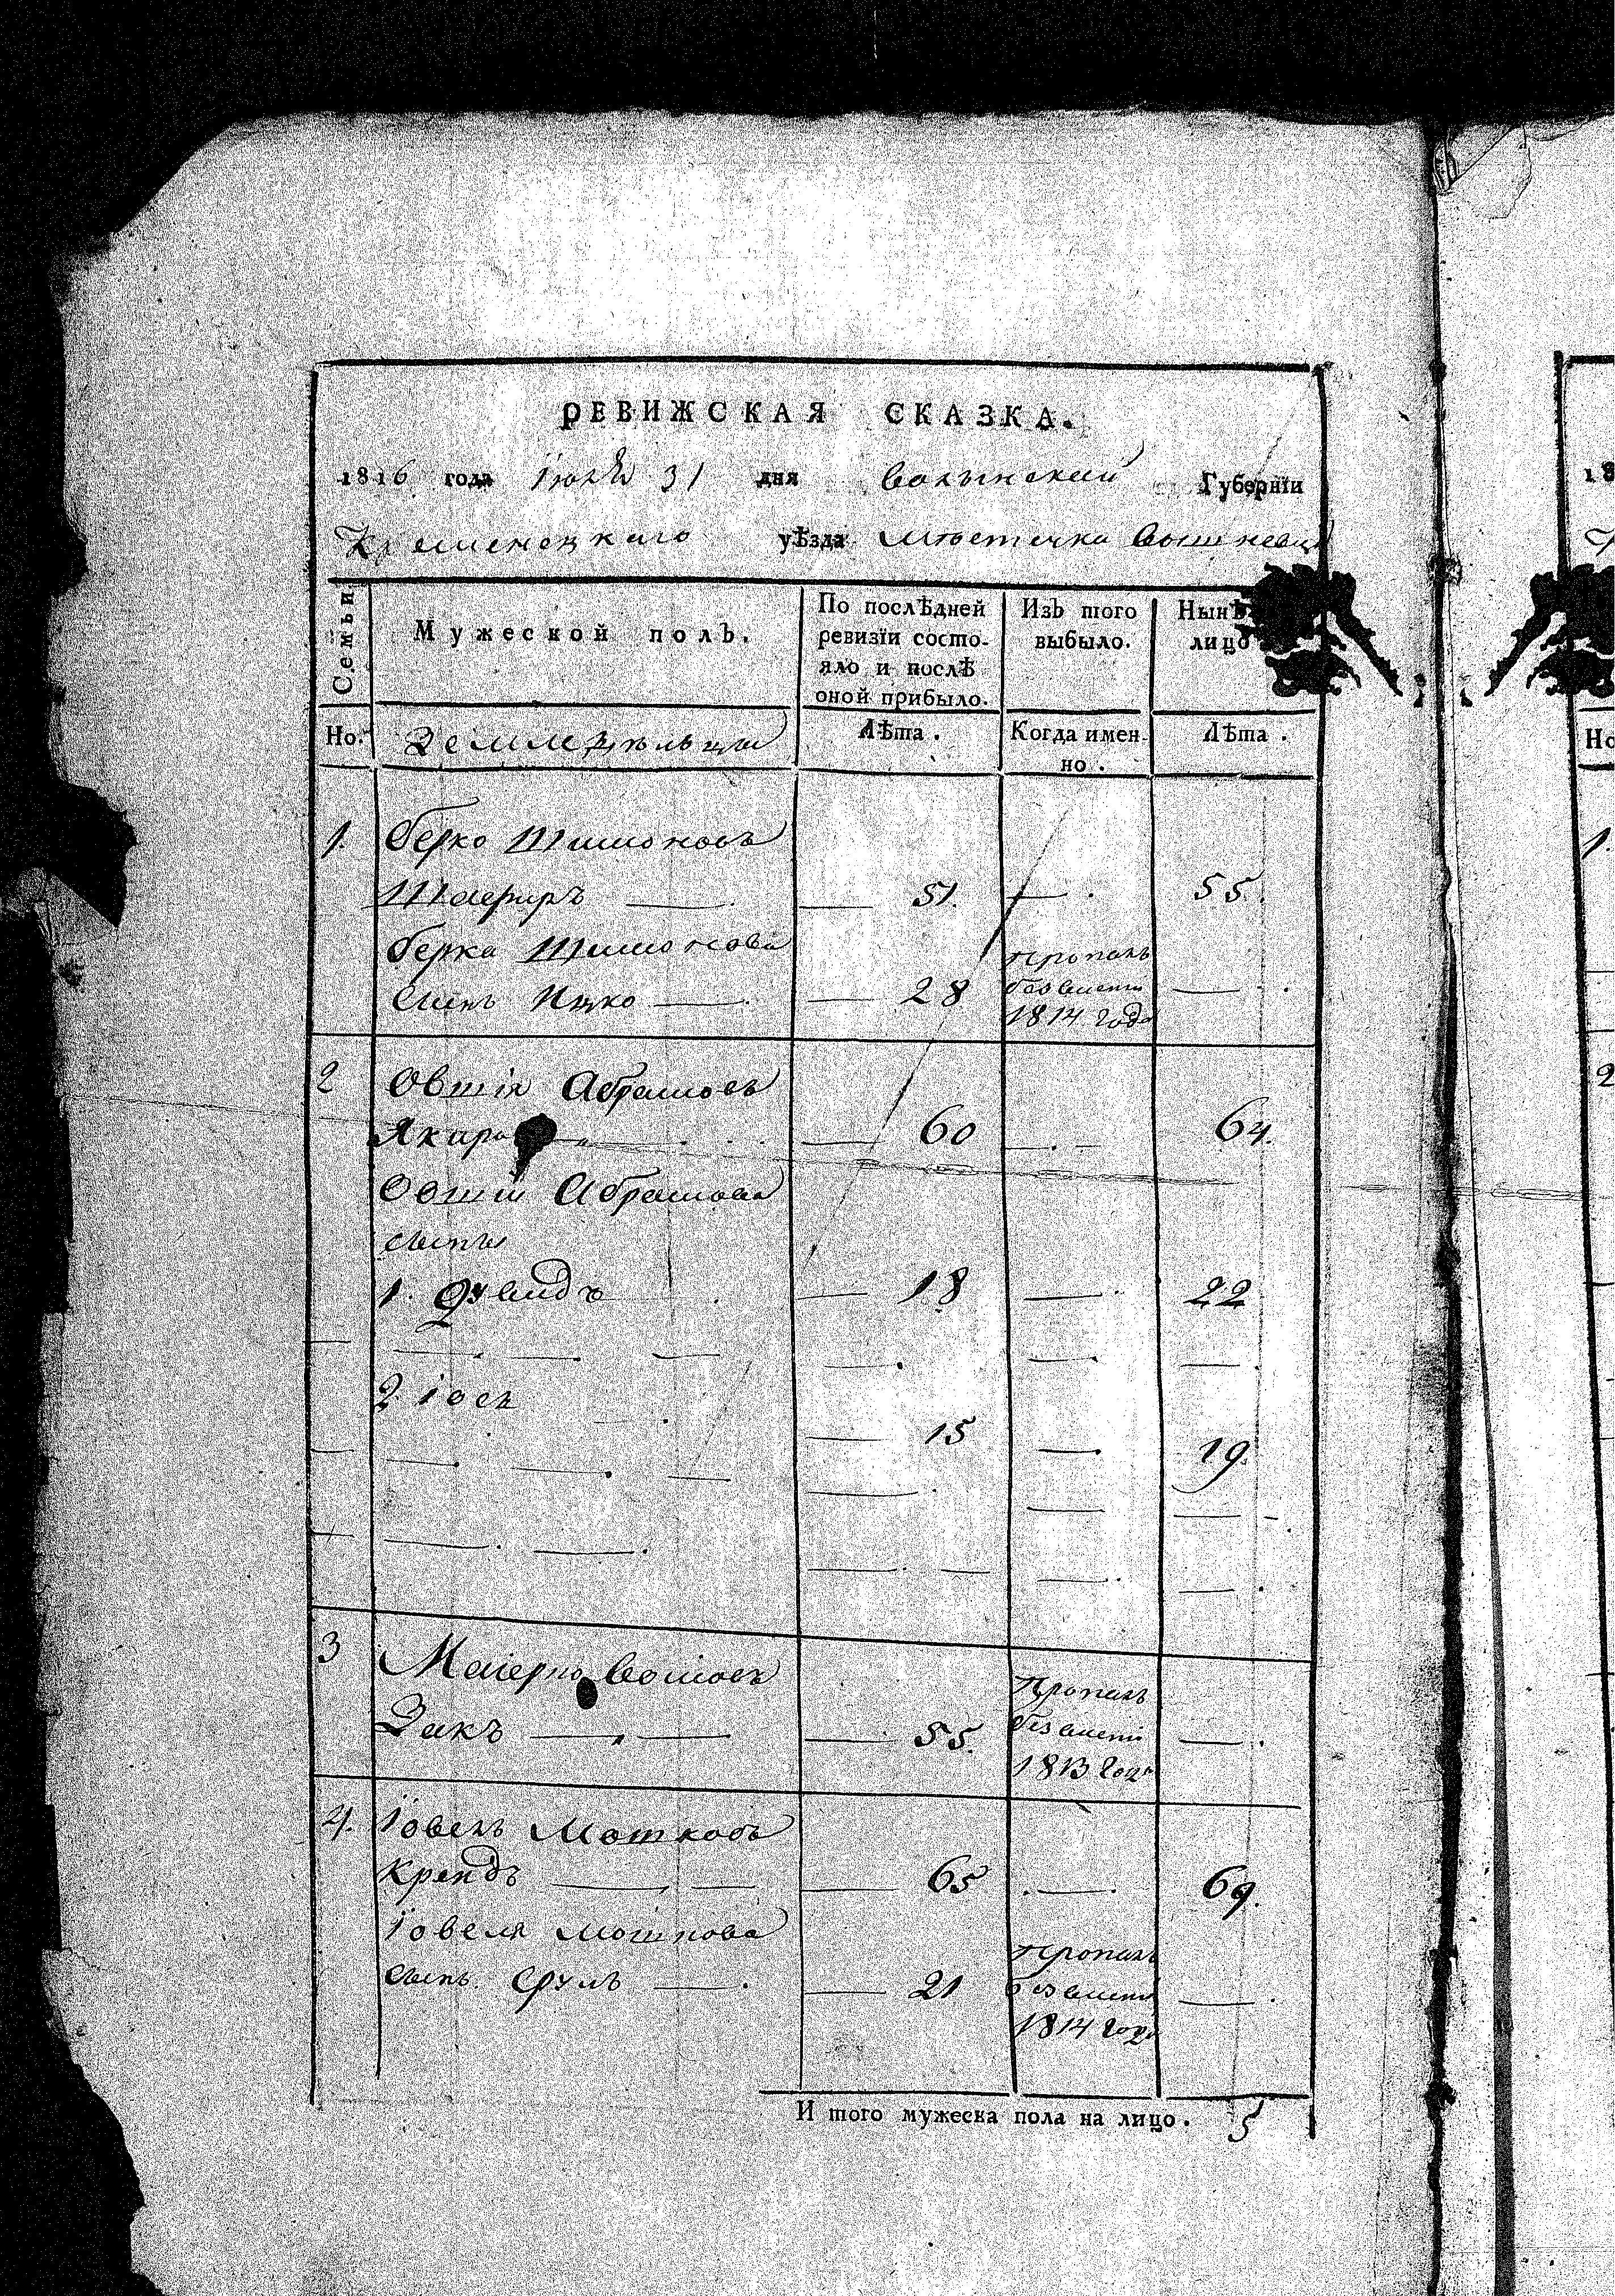 РЕВИЖСКАЯ СКАЗКА.
1816 года Iюля 31 дня Волынской Губернїи
Кременецкаго уѣзда Мѣстечка Вишневца
Семьи
Мужеской полъ.
По послѣдней
ревизїи состо-
яло и послѣ
оной прибыло.
Изъ того
выбыло.
Нынѣ
лицо
Но. Земледѣльцы Лѣта. Когда имен-
но. Лѣта.
1. Берко Шимоновъ
51. 55.
Берка Шимонова
сынъ Ицко 28 пропалъ
безвести
1814 года
2 Овшія Абрамовъ
60 64.
Овшіи Абрамова
сыны
1. Дувидъ 18 22
2 Iось 15 19.
3 Маіерко
Закъ 55. Пропалъ
безвести
1813 года
4. Iовель Мошковъ
65 69.
Iовеля Мошкова
сынъ Сруль 21 пропалъ
безвести
1814 года
И того мужеска пола на лицо. 5
18
Но
1.
2